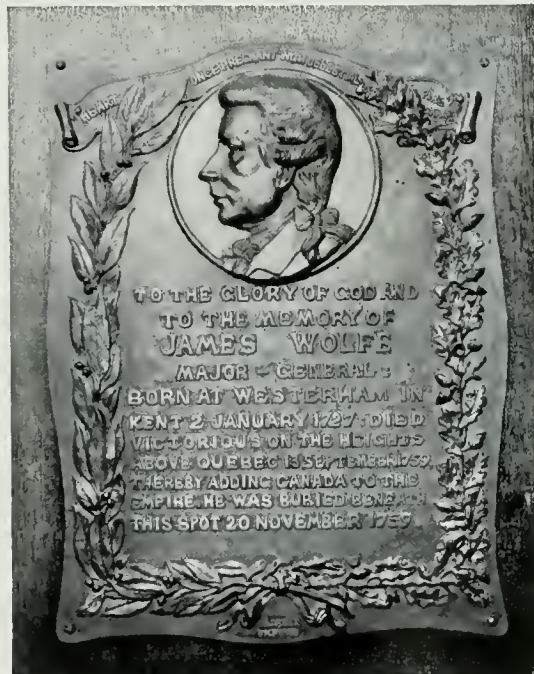 HEART ONCE PREGNANT
TO THE GLORY OF GOD AND
TO THE MEMORY OF
JAMES WOLFE
MAJOR-GENERAL:
BORN AT WESTERHAM IN
KENT 2 JANUARY 1727: DIED
VICTORIOUS ON THE HEIGHTS
ABOVE QUEBEC 13 SEPTEMBER 1759,
THEREBY ADDING CANADA TO THE
EMPIRE. HE WAS BURIED BENEATH
THIS SPOT 20 NOVEMBER 1759